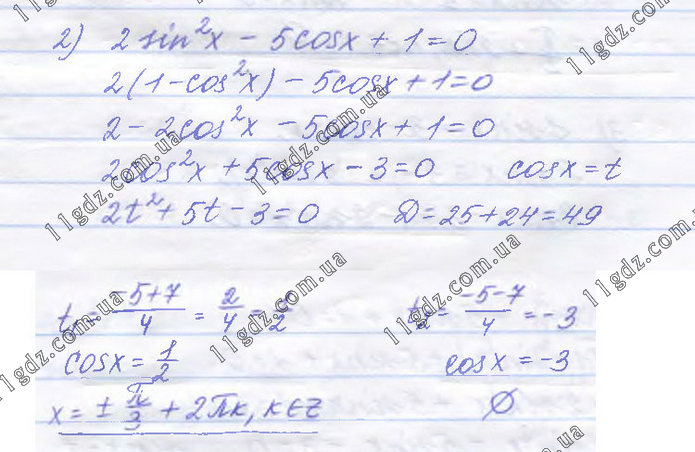 2) 2 sin²x − 5cosx + 1 = 0
2(1−cos²x) − 5cosx + 1 = 0
2 − 2cos²x − 5cosx + 1 = 0
2cos²x + 5cosx − 3 = 0 cosx = t
2t² + 5t − 3 = 0 D = 25 + 24 = 49
t₁ = (−5+7)/4 = 2/4 = 1/2 t₂ = (−5−7)/4 = −3
cosx = 1/2 cosx = −3
x = ± π/3 + 2πk, k∈Z ∅
11gdz.com.ua
11gdz.com.ua
11gdz.com.ua
11gdz.com.ua
11gdz.com.ua
11gdz.com.ua
11gdz.com.ua